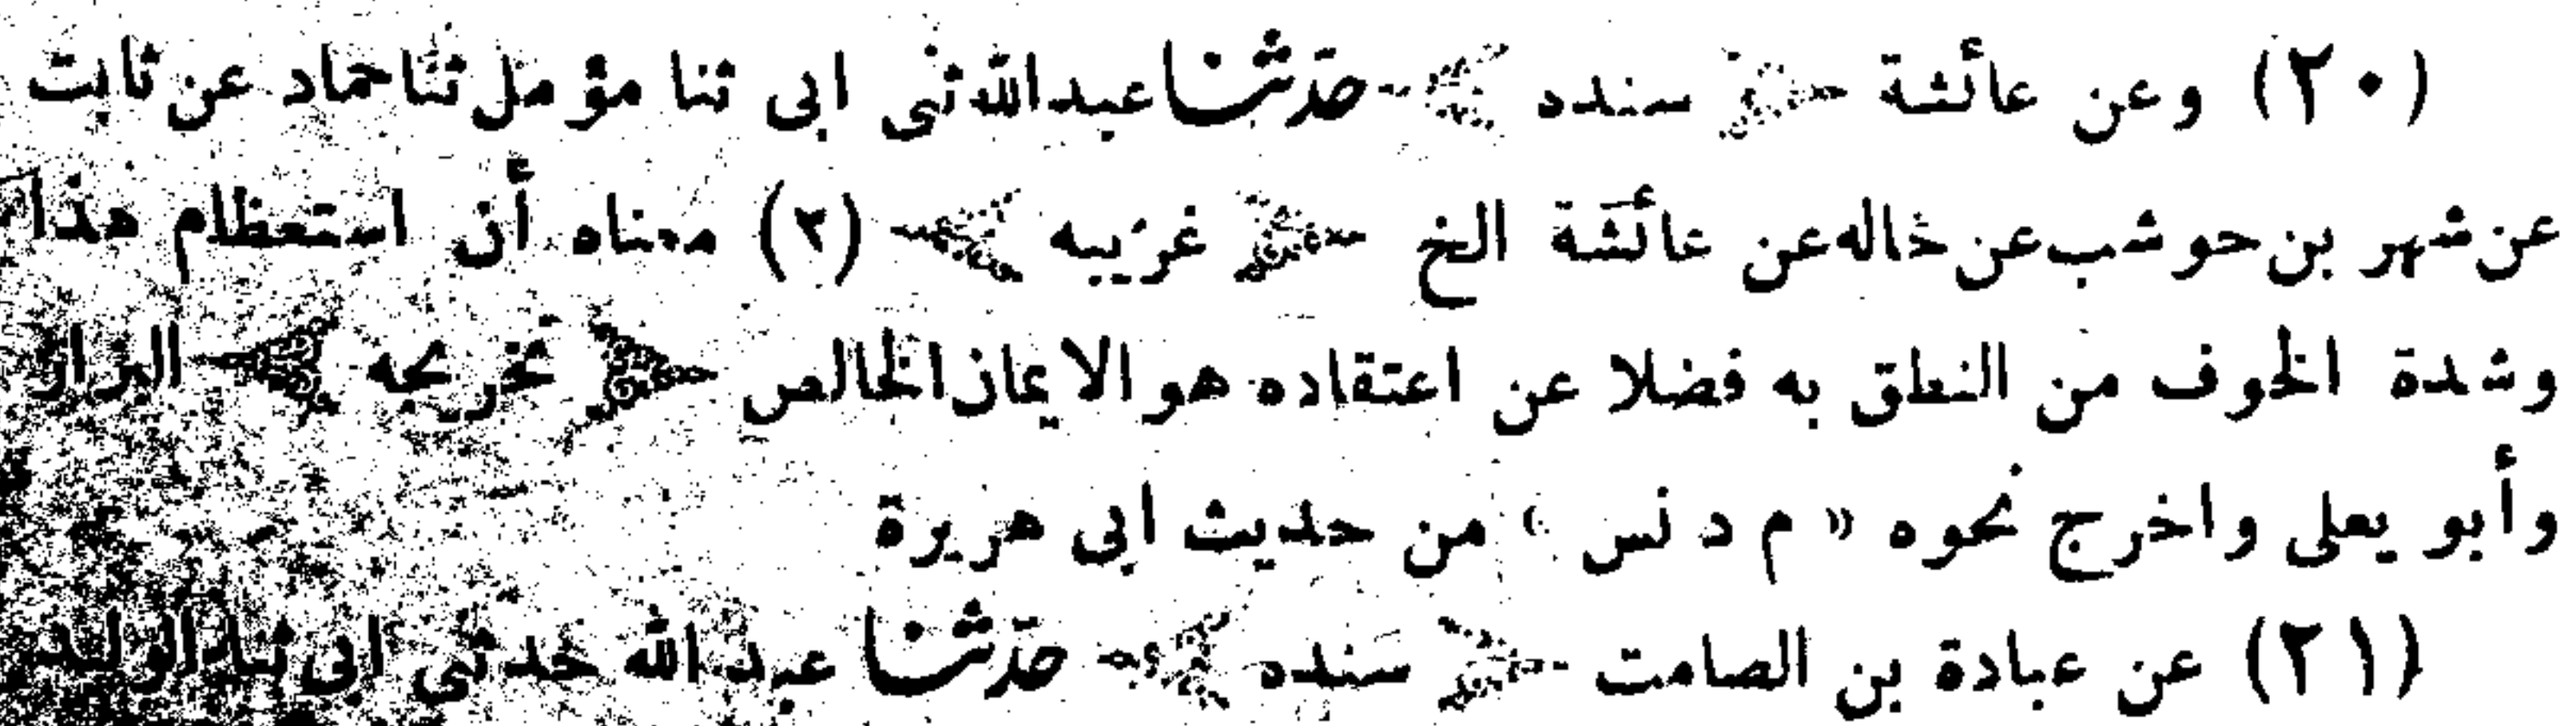 (٢٠) وعن عائشة ﴿ سنده ﴾ حدّثنا عبدالله ثنى ابى ثنا مؤمل ثنا حماد عن ثابت
عن شهر بن حوشب عن خاله عن عائشة الخ ﴿ غريبه ﴾ (٢) معناه أن استعظام هذا
وشدة الخوف من النطق به فضلا عن اعتقاده هو الايمان الخالص ﴿ تخريجه ﴾ البزار
وأبو يعلى واخرج نحوه « م د نس » من حديث ابى هريرة
(٢١) عن عبادة بن الصامت ﴿ سنده ﴾ حدّثنا عبد الله حدثنى ابى ثنا الوليد